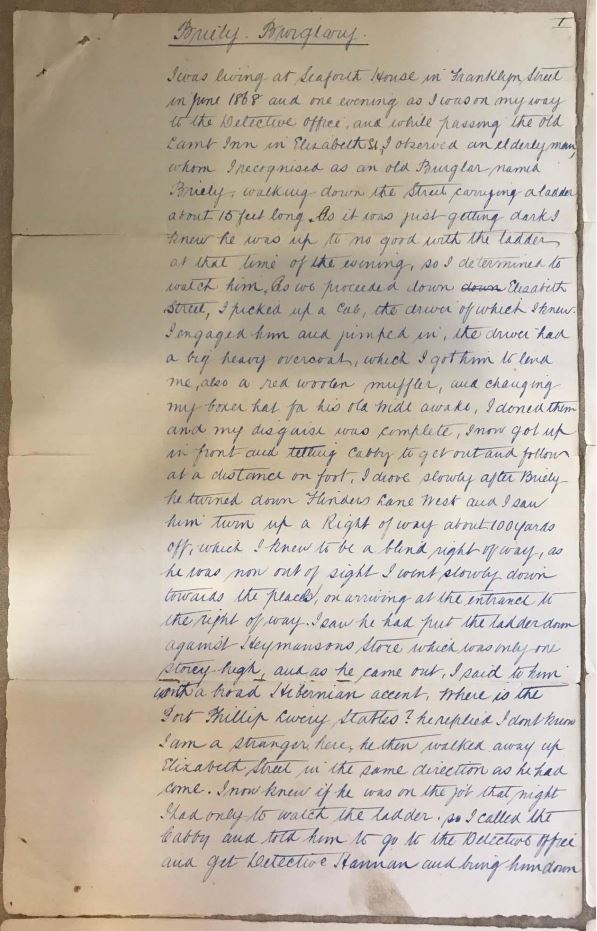 1
Briely. Burglary.
I was living at Seaforth House in Franklyn Street
in June 1868 and one evening as I was on my way
to the Detective office, and while passing the old
Lamb Inn in Elizabeth St, I observed an elderly man,
whom I recognised as an old Burglar named
Briely, walking down the Street carrying a ladder
about 15 feet long. As it was just getting dark I
knew he was up to no good with the ladder
at that time of the evening, so I determined to
watch him. As we proceeded down down Elizabeth
Street, I picked up a Cab, the driver of which I knew.
I engaged him and jumped in, the driver had
a big heavy overcoat, which I got him to lend
me, also a red woolen muffler, and changing
my boxer hat for his old wide awake, I doned them
and my disguise was complete, I now got up
in front and telling Cabby to get out and follow
at a distance on foot, I drove slowly after Briely
he turned down Flinders Lane West and I saw
him turn up a Right of way about 100 yards
off, which I knew to be a blind right of way, as
he was now out of sight I went slowly down
towards the place, on arriving at the entrance to
the right of way. I saw he had put the ladder down
against Heymansons Store which was only one
storey high, and as he came out, I said to him
with a broad Hibernian accent, Where is the
Port Phillip Livery Stables? he replied I dont know
I am a stranger here, he then walked away up
Elizabeth Street in the same direction as he had
come. I now knew if he was on the job that night
I had only to watch the ladder, so I called the
Cabby and told him to go to the Detective office
and get Detective Hannan and bring him down